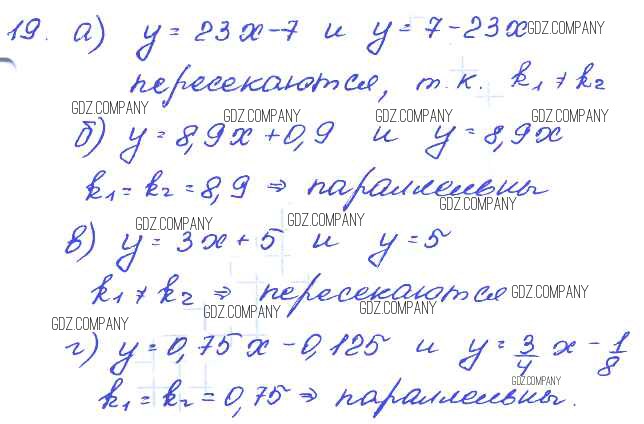 19. а) y = 23x - 7 и y = 7 - 23x GDZ.COMPANY
пересекаются, т.к. k₁ ≠ k₂
GDZ.COMPANY GDZ.COMPANY GDZ.COMPANY GDZ.COMPANY
б) y = 8,9x + 0,9 и y = 8,9x
k₁ = k₂ = 8,9 ⇒ параллельны
GDZ.COMPANY GDZ.COMPANY GDZ.COMPANY
в) y = 3x + 5 и y = 5
k₁ ≠ k₂ ⇒ пересекаются GDZ.COMPANY
GDZ.COMPANY GDZ.COMPANY GDZ.COMPANY
г) y = 0,75x - 0,125 и y = 3/4 x - 1/8
GDZ.COMPANY
k₁ = k₂ = 0,75 ⇒ параллельны.